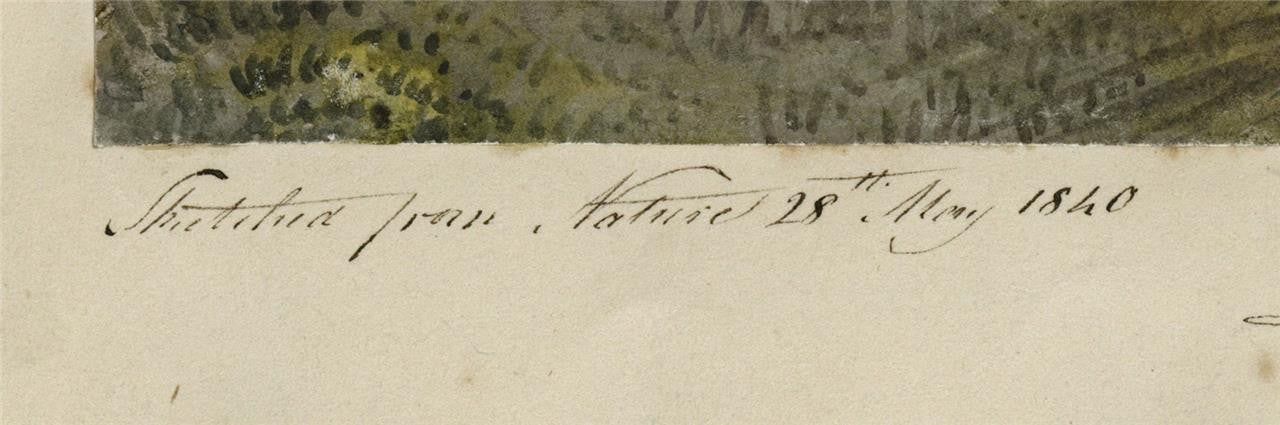 Sketched from Nature 28th May 1840